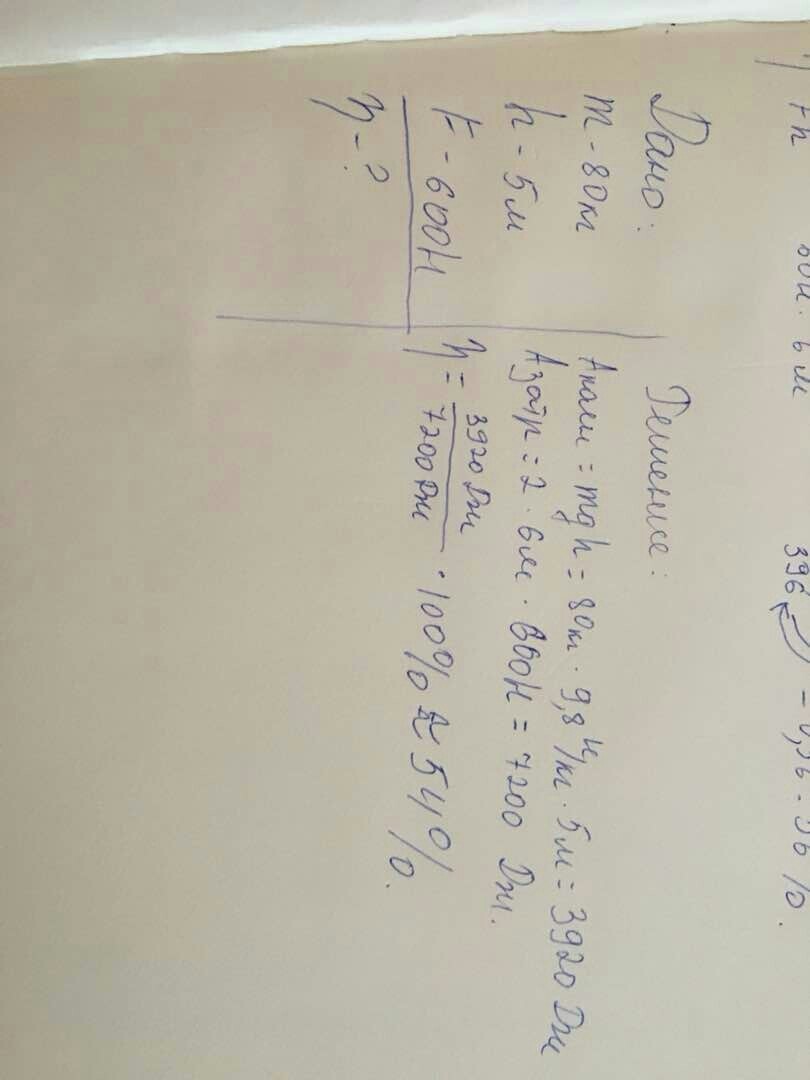 396 = 0,36 = 36 %.
Дано:
m - 80кг
h - 5м
F - 600Н
η - ?
Решение:
Aполн = mgh = 80кг · 9,8 Н/кг · 5м = 3920 Дж
Aзатр = 2 · 6м · 600Н = 7200 Дж.
η = 3920 Дж / 7200 Дж · 100% ≈ 54%.